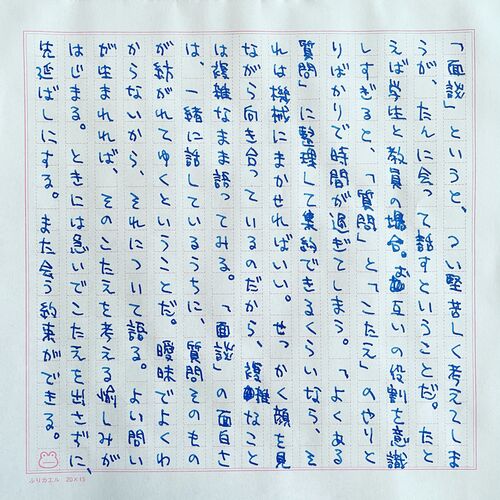 「面談」というと、つい堅苦しく考えてしま
うが、たんに会って話すということだ。たと
えば学生と教員の場合。お互いの役割を意識
しすぎると、「質問」と「こたえ」のやりと
りばかりで時間が過ぎてしまう。「よくある
質問」に整理して集約できるくらいなら、そ
れは機械にまかせればいい。せっかく顔を見
ながら向き合っているのだから、複雑なこと
は複雑なまま語ってみる。「面談」の面白さ
は、一緒に話しているうちに、質問そのもの
が紡がれてゆくということだ。曖昧でよくわ
からないから、それについて語る。よい問い
が生まれれば、そのこたえを考える愉しみが
はじまる。ときには急いでこたえを出さずに、
先延ばしにする。また会う約束ができる。
ふりカエル 20×15